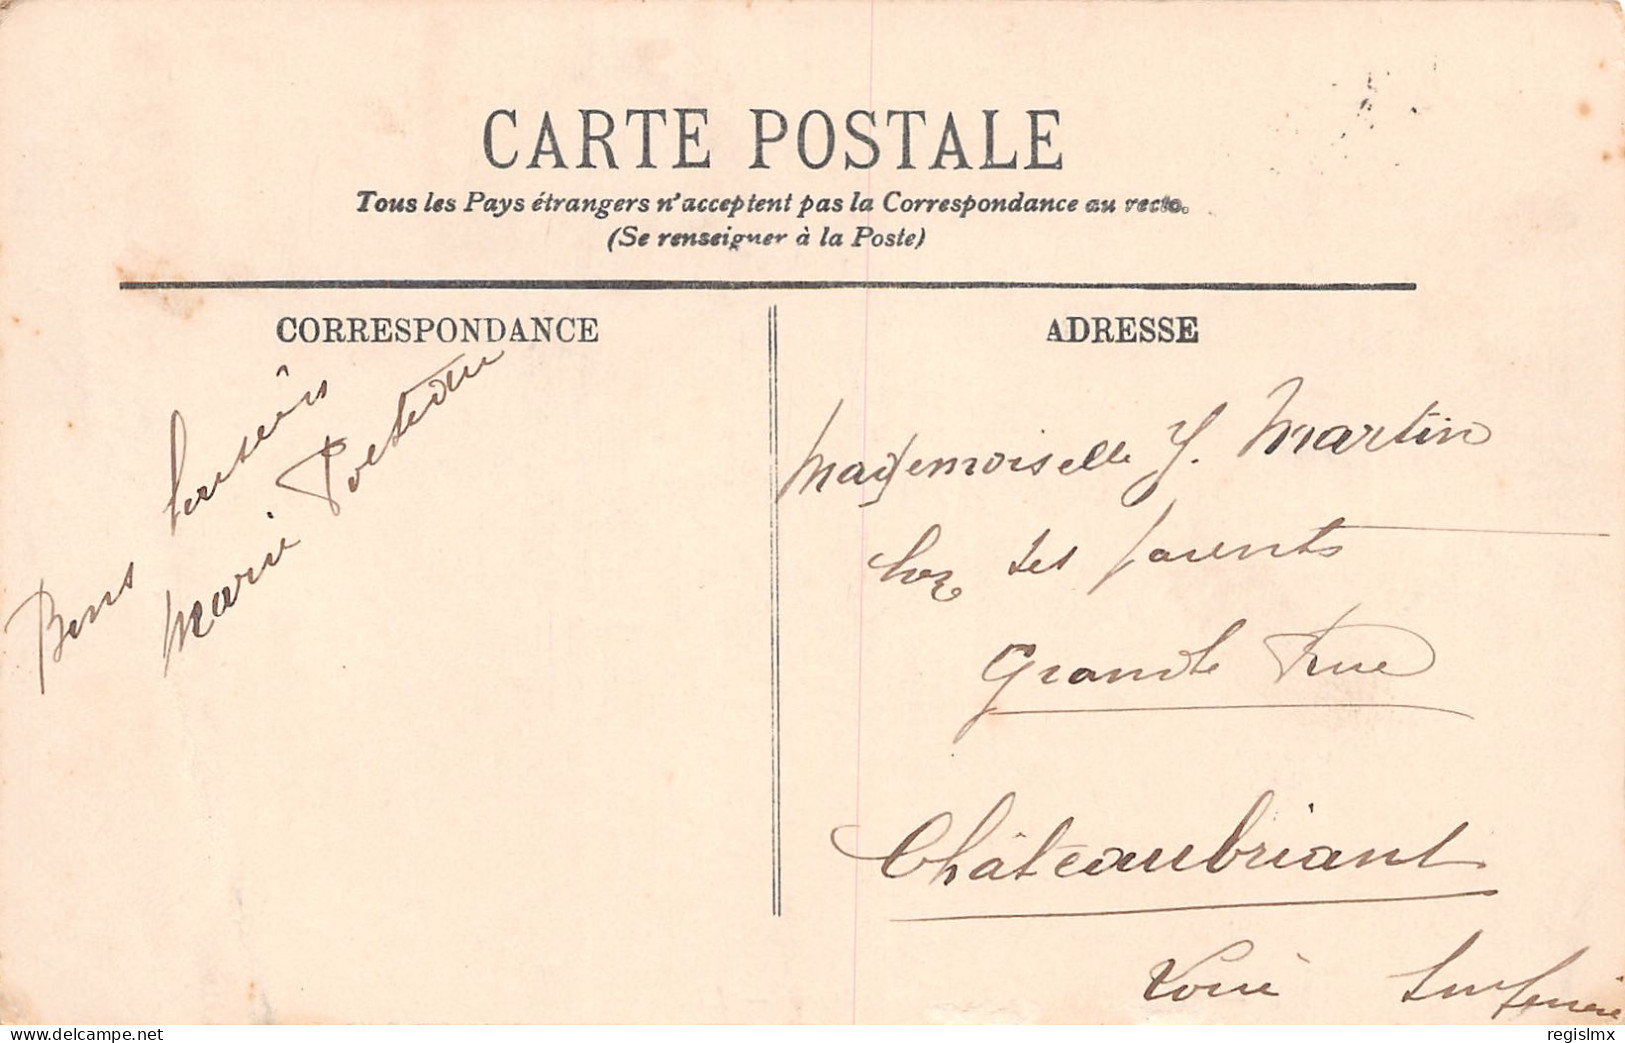 CARTE POSTALE
Tous les Pays étrangers n'acceptent pas la Correspondance au recto.
(Se renseigner à la Poste)
CORRESPONDANCE
ADRESSE
Bons baisers
Marie
Mademoiselle J. Martin
chez ses parents
Grande Rue
Châteaubriant
Loire Inférieure
regislmx